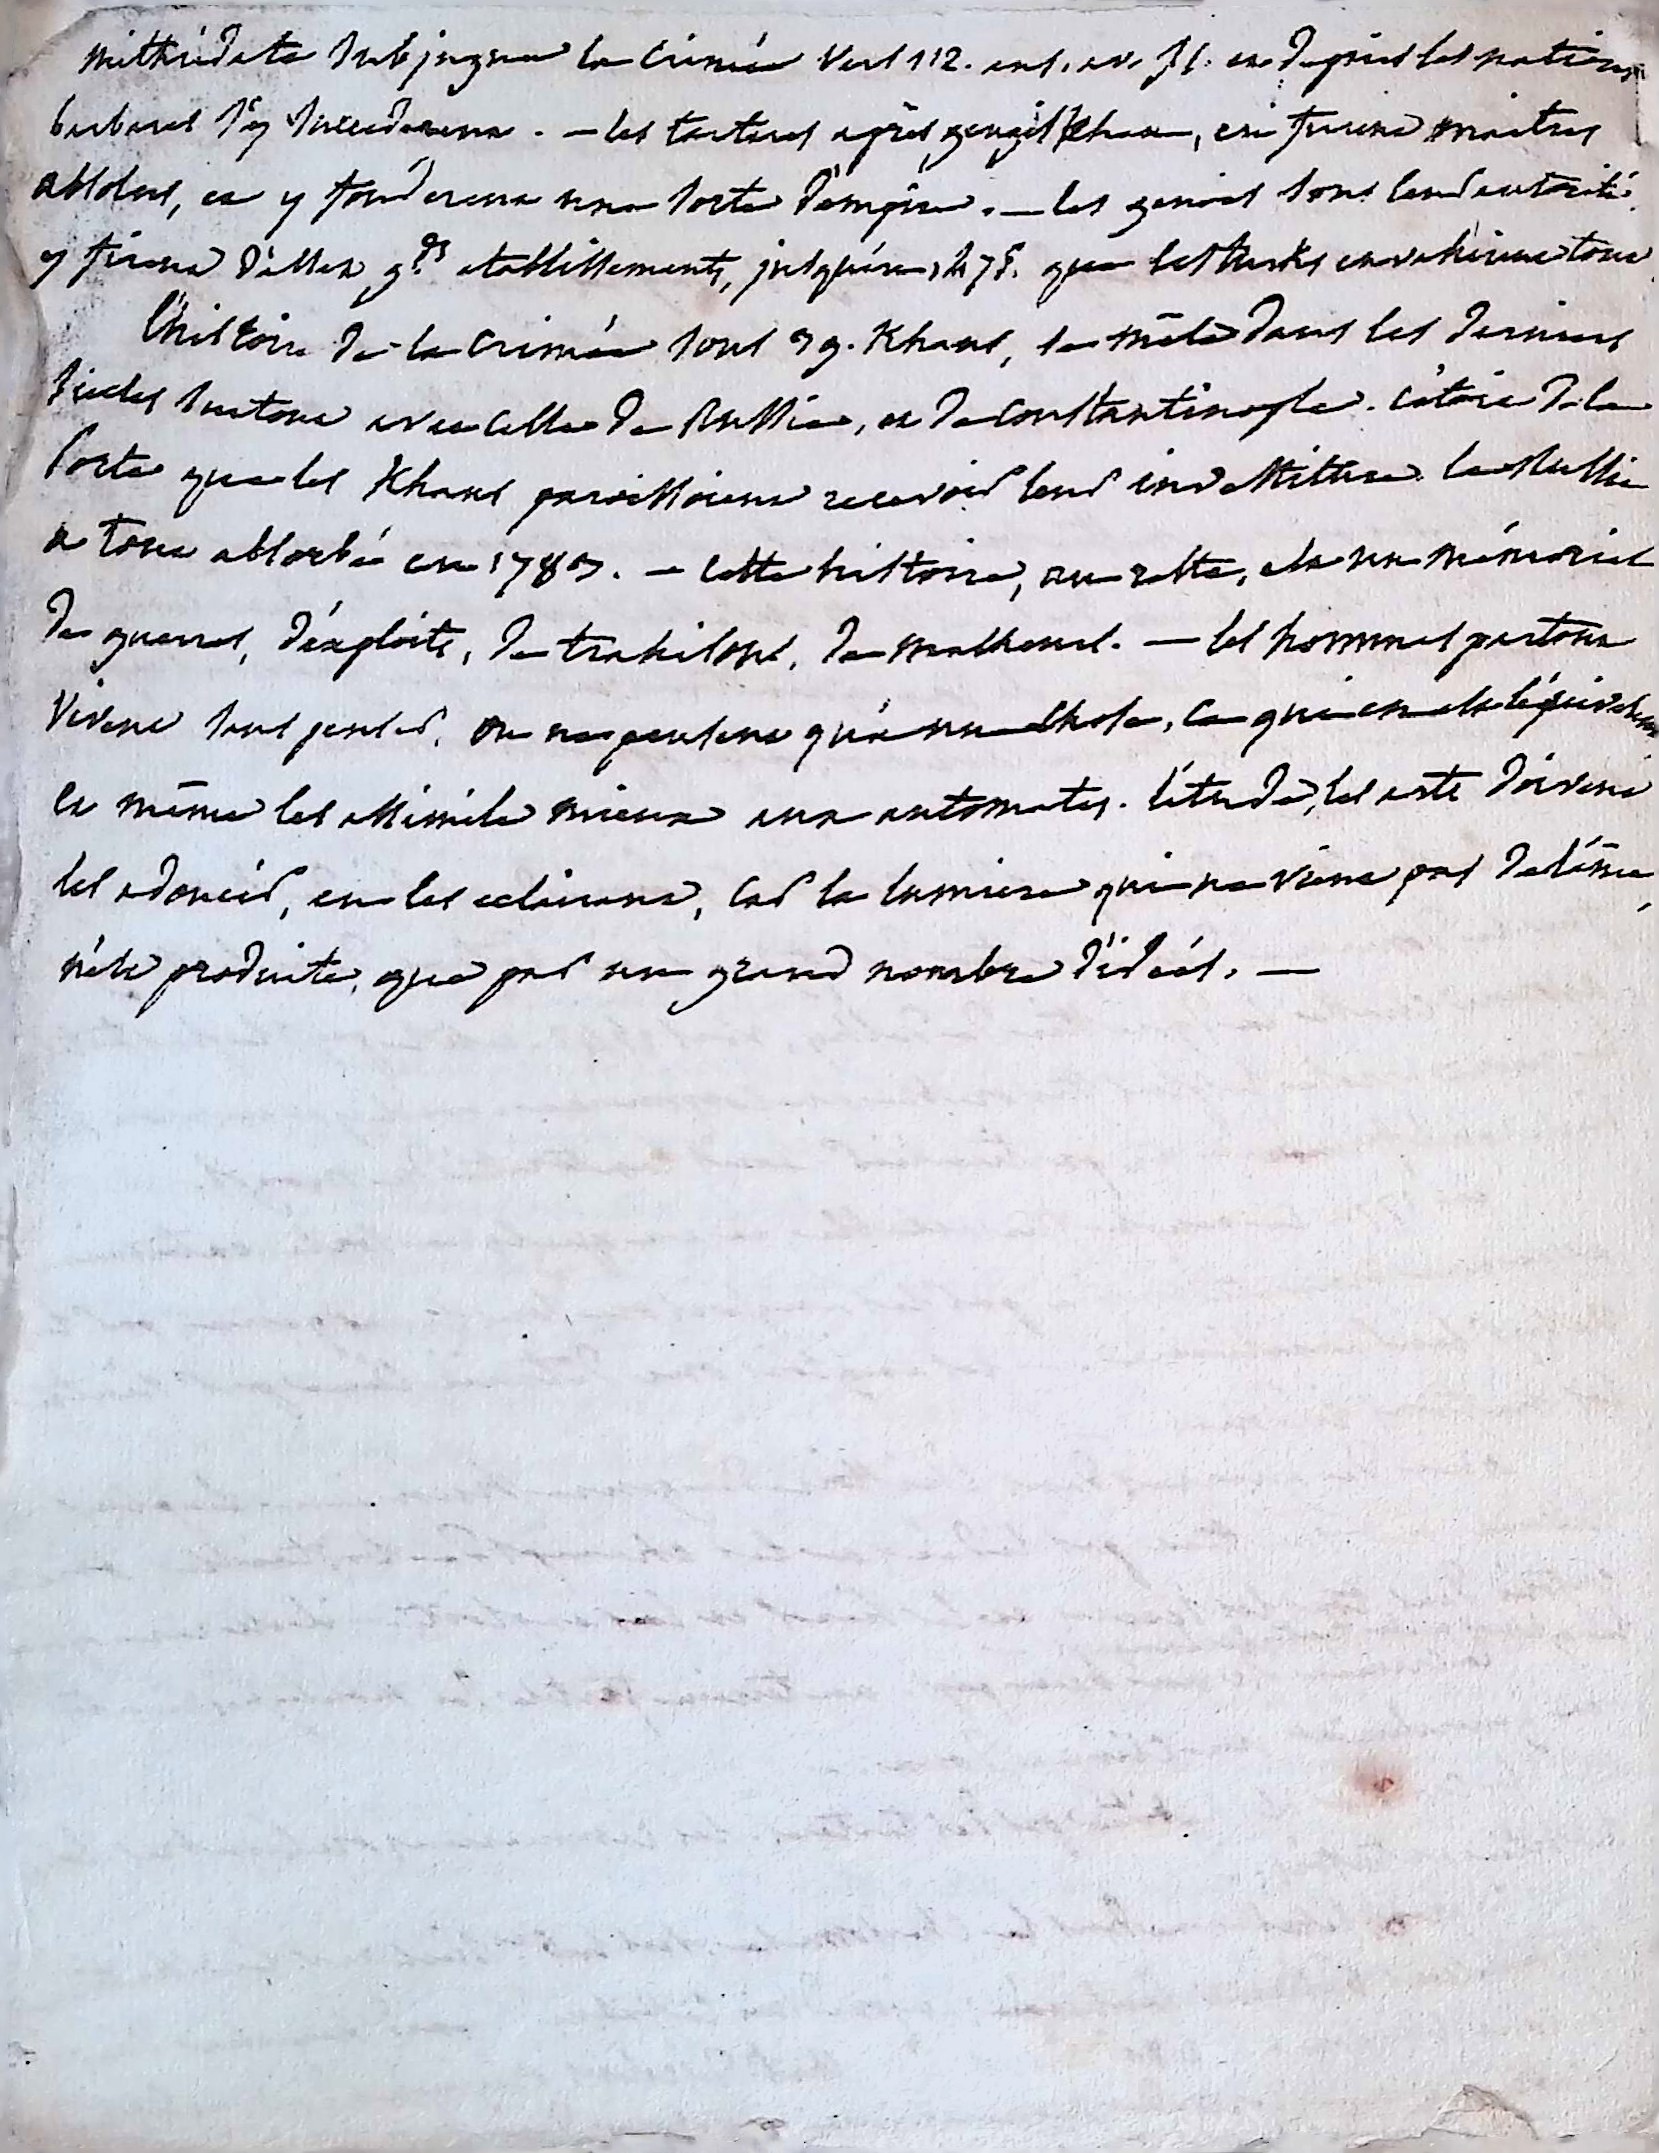 mithridate subjugua la Crimée vers 112. ans. av. J.C. et depuis les nations
barbares s'y succederent. — les tartares après gengis khan, en furent maitres
absolus, et y fonderent une sorte d'empire. — les genois sous leur autorité
y firent d'assez g.ds etablissements, jusqu'en 1475. que les turks envahirent tout
L'histoire de la Crimée sous 39. Khans, se mêle dans les derniers
siecles surtout avec celle de Russie, et de Constantinople. c'étoit de la
Porte que les Khans paroissoient recevoir leur investiture. la Russie
a tout absorbé en 1783. — cette histoire, au reste, est un mémorial
de guerres, d'exploits, de trahisons, de malheurs. — les hommes partout
vivent sans penser, ou ne pensent qu'à une chose, ce qui en est l'équivalent
et même les assimile mieux aux automates. l'étude, les arts doivent
les adoucir, en les eclairant, car la lumiere qui ne vient pas de l'âme,
n'est produite, que par un grand nombre d'idées. —